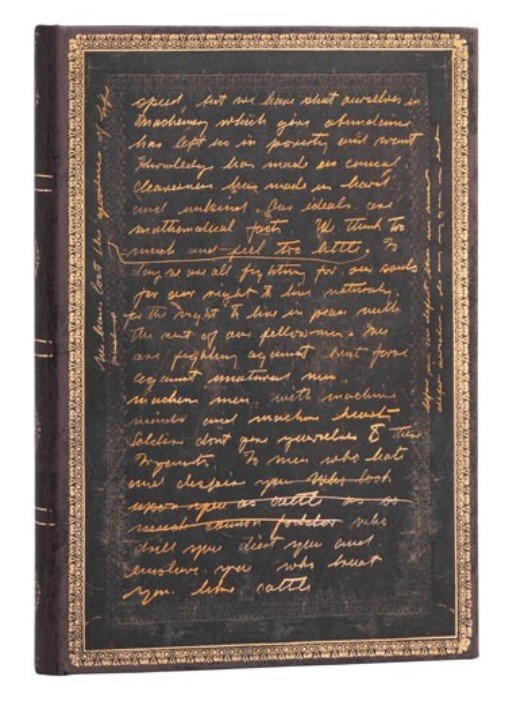 speed, but we have shut ourselves in.
Machinery which gives abundance
has left us in poverty and want
Knowledge has made us cynical.
Cleverness has made us hard
and unkind. Our ideals are
mathematical facts. We think too
much and feel too little. To
day we are all fighting for our souls
for our right to live naturaly
for the right to live in peace with
the rest of our fellowmen. We
are fighting against that force
against unatural men.
machine men, with machine
minds and machine hearts
Soldiers dont give yourselves to these
To men who hate
and despise you who look
upon you as cattle as so
much cannon fodder who
drill you diet you and
enslave you who treat
you like cattle
We have lost the